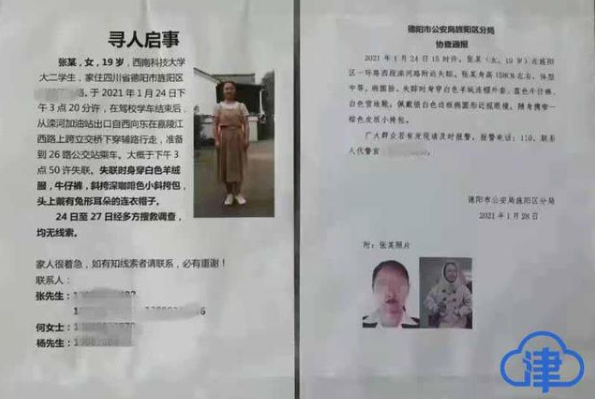 寻人启事
张某，女，19岁，西南科技大学
大二学生，家住四川省德阳市旌阳区
。于2021年1月24日下
午3点20分许，在驾校学车结束后，
从滦河加油站出口自西向东在嘉陵江
西路上跨立交桥下穿辅路行走，准备
到26路公交站乘车。大概于下午3
点50许失联。失联时身穿白色羊绒
服，牛仔裤，斜挎深咖啡色小斜挎包，
头上戴有兔形耳朵的连衣帽子。
24日至27日经多方搜救调查，
均无线索。
家人很着急，如有知线索者请联系，必有重谢！
联系人：
张先生：
何女士：
杨先生：
德阳市公安局旌阳区分局
协查通报
2021年1月24日15时许，张某（女，19岁）在旌阳
区一环路西段滦河路附近失踪。张某身高158CM左右、体型
中等、椭圆脸、失踪时身穿白色羊绒连帽外套、蓝色牛仔裤、
白色雪地靴，佩戴银白色边框椭圆形近视眼镜，随身携带一
棕色皮质小挎包。
广大群众若有发现请及时报警，报警电话：110、联系
人代警官
德阳市公安局旌阳区分局
2021年1月28日
附：张某照片
津